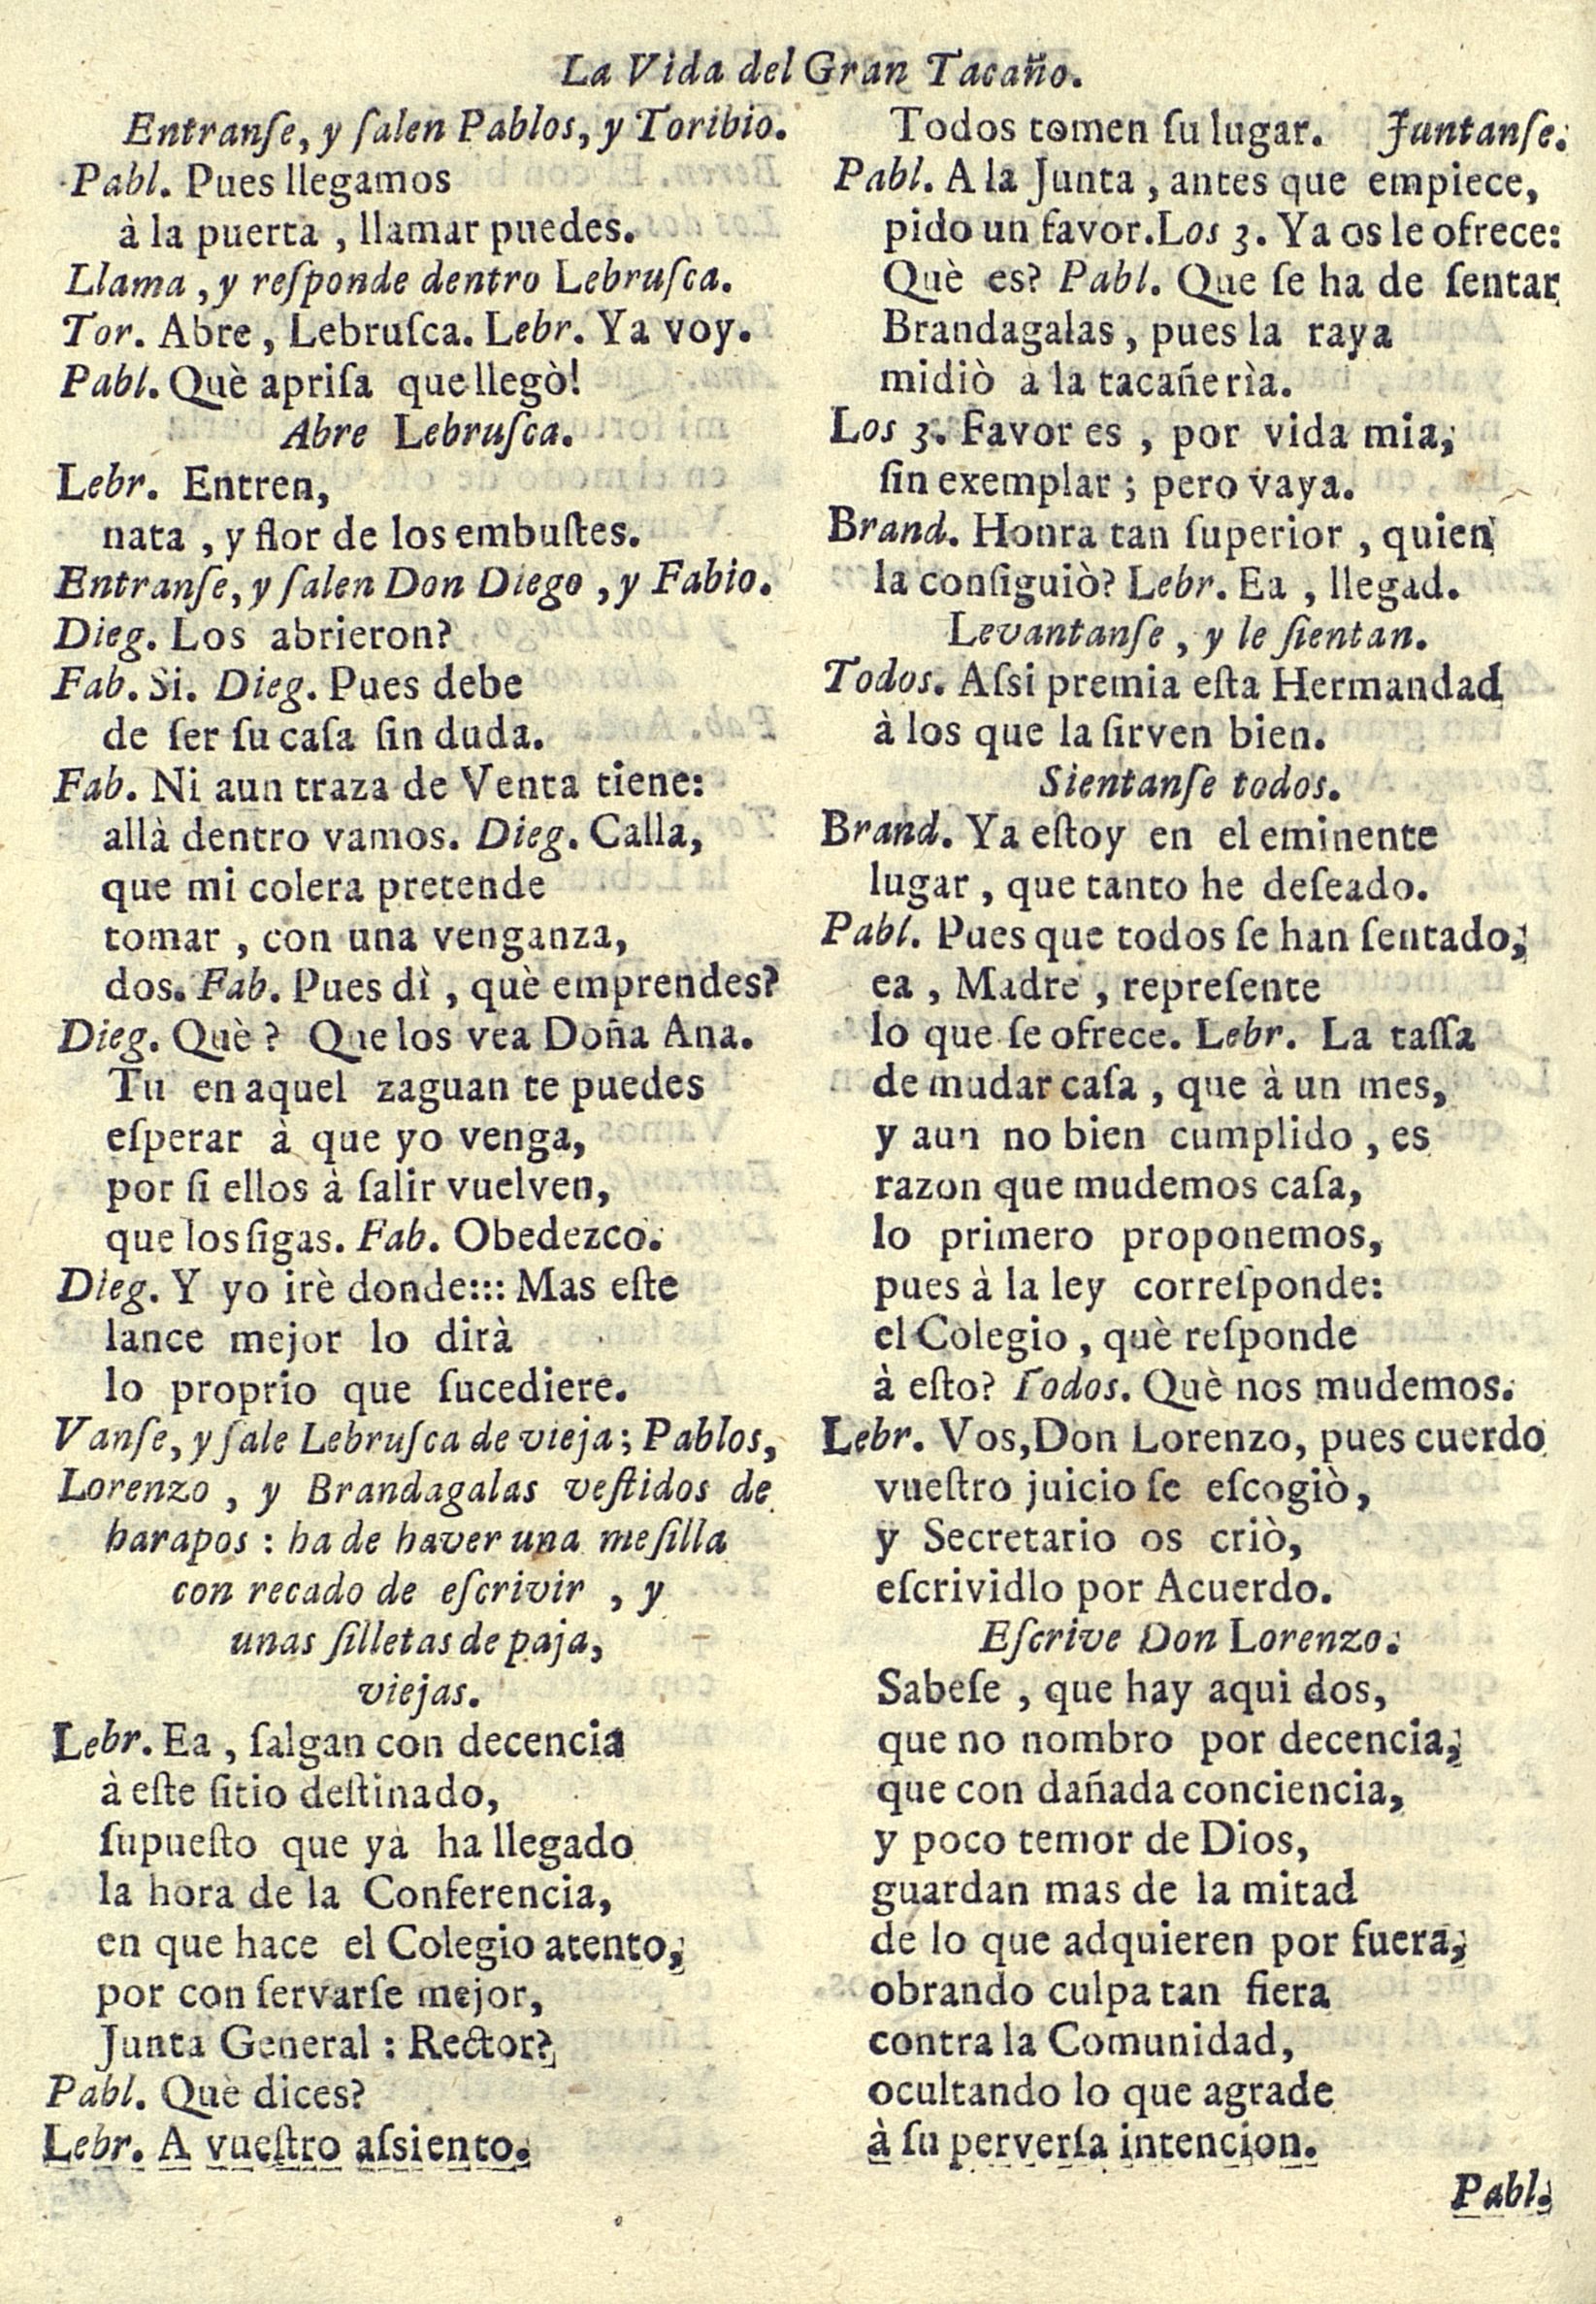 La Vida del Gran Tacaño.
Entranſe, y ſalen Pablos, y Toribio.
Pabl. Pues llegamos
à la puerta, llamar puedes.
Llama, y reſponde dentro Lebruſca.
Tor. Abre, Lebruſca. Lebr. Ya voy.
Pabl. Què apriſa que llegò!
Abre Lebruſca.
Lebr. Entren,
nata, y flor de los embuſtes.
Entranſe, y ſalen Don Diego, y Fabio.
Dieg. Los abrieron?
Fab. Si. Dieg. Pues debe
de ſer ſu caſa ſin duda.
Fab. Ni aun traza de Venta tiene:
allà dentro vamos. Dieg. Calla,
que mi colera pretende
tomar, con una venganza,
dos. Fab. Pues dì, què emprendes?
Dieg. Què? Que los vea Doña Ana.
Tu en aquel zaguan te puedes
eſperar à que yo venga,
por ſi ellos à ſalir vuelven,
que los ſigas. Fab. Obedezco.
Dieg. Y yo irè donde::: Mas eſte
lance mejor lo dirà
lo proprio que ſucediere.
Vanſe, y ſale Lebruſca de vieja; Pablos,
Lorenzo, y Brandagalas veſtidos de
harapos: ha de haver una meſilla
con recado de eſcrivir, y
unas ſilletas de paja,
viejas.
Lebr. Ea, ſalgan con decencia
à eſte ſitio deſtinado,
ſupueſto que yà ha llegado
la hora de la Conferencia,
en que hace el Colegio atento,
por conſervarſe mejor,
Junta General: Rector?
Pabl. Què dices?
Lebr. A vueſtro aſsiento.
Todos tomen ſu lugar. Juntanſe.
Pabl. A la Junta, antes que empiece,
pido un favor. Los 3. Ya os le ofrece:
Què es? Pabl. Que ſe ha de ſentar
Brandagalas, pues la raya
midiò a la tacañerìa.
Los 3. Favor es, por vida mia,
ſin exemplar; pero vaya.
Brand. Honra tan ſuperior, quien
la conſiguiò? Lebr. Ea, llegad.
Levantanſe, y le ſientan.
Todos. Aſsi premia eſta Hermandad
à los que la ſirven bien.
Sientanſe todos.
Brand. Ya eſtoy en el eminente
lugar, que tanto he deſeado.
Pabl. Pues que todos ſe han ſentado,
ea, Madre, repreſente
lo que ſe ofrece. Lebr. La taſſa
de mudar caſa, que à un mes,
y aun no bien cumplido, es
razon que mudemos caſa,
lo primero proponemos,
pues à la ley correſponde:
el Colegio, què reſponde
à eſto? Todos. Què nos mudemos.
Lebr. Vos, Don Lorenzo, pues cuerdo
vueſtro juicio ſe eſcogiò,
y Secretario os criò,
eſcrividlo por Acuerdo.
Eſcrive Don Lorenzo.
Sabeſe, que hay aqui dos,
que no nombro por decencia,
que con dañada conciencia,
y poco temor de Dios,
guardan mas de la mitad
de lo que adquieren por fuera,
obrando culpa tan fiera
contra la Comunidad,
ocultando lo que agrade
à ſu perverſa intencion.
Pabl.